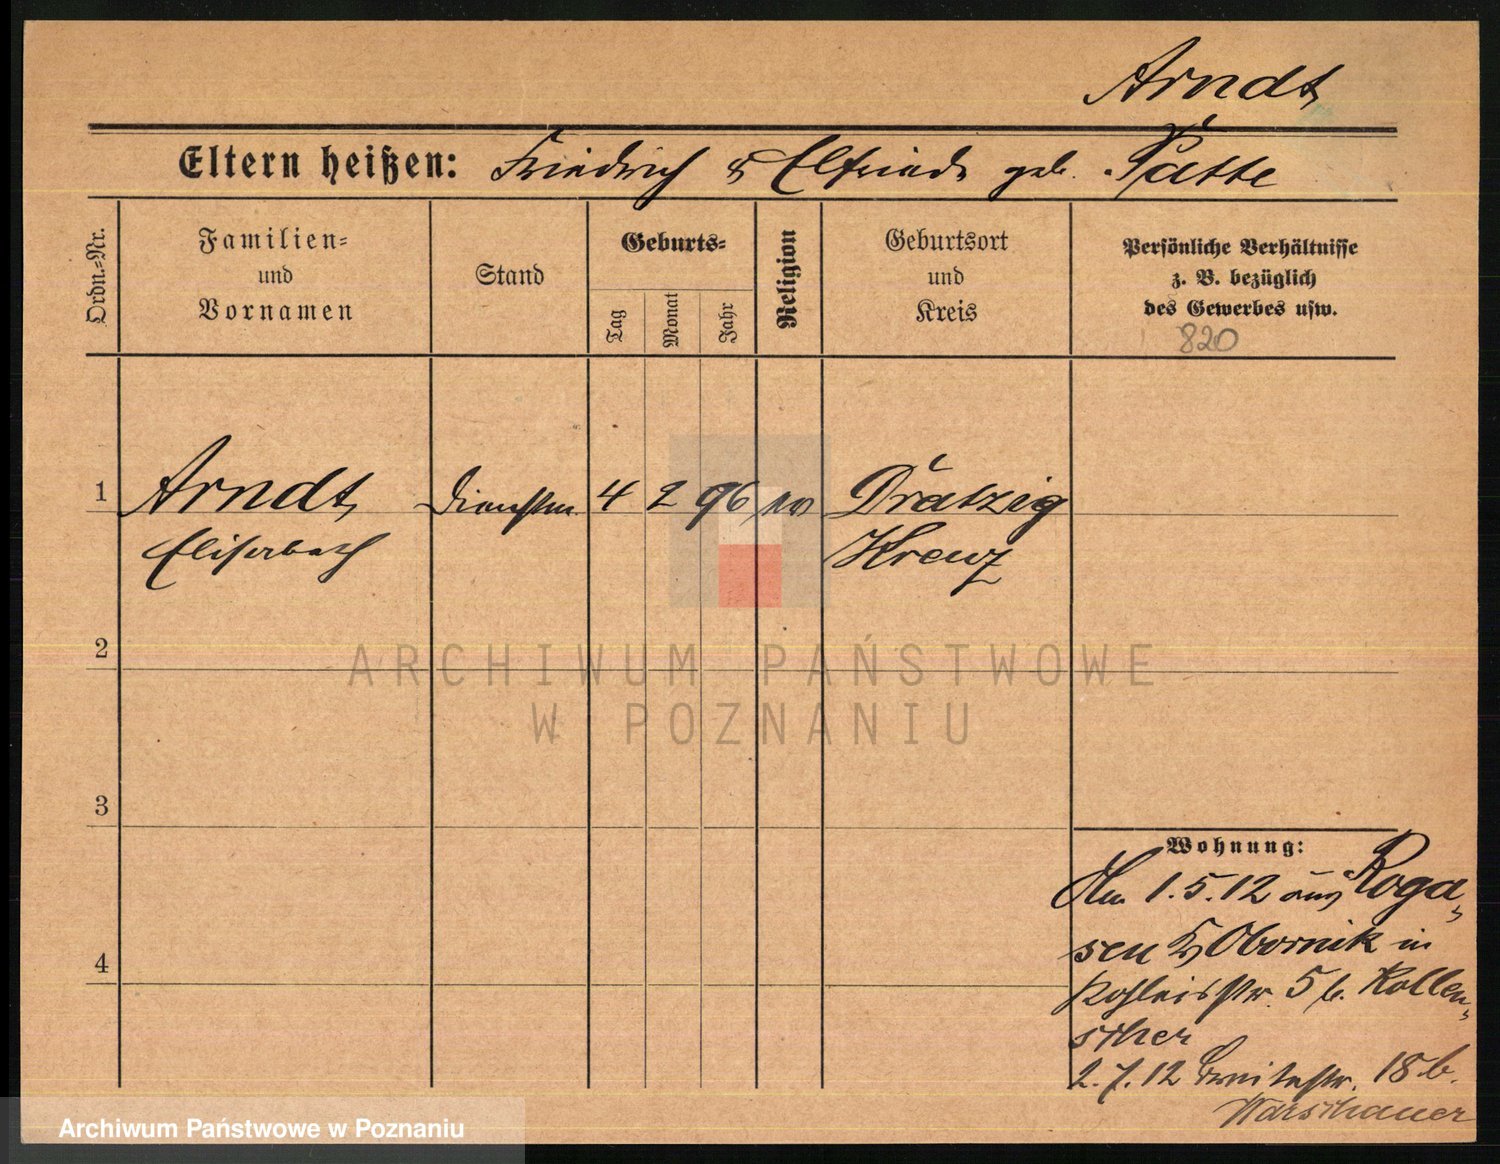 Arndt
Eltern heißen: Friedrich u Elfriede geb. Patte
Ordn.=Nr.
Familien=
und
Vornamen
Stand
Geburts=
Tag
Monat
Jahr
Religion
Geburtsort
und
Kreis
Persönliche Verhältnisse
z. B. bezüglich
des Gewerbes usw.
820
1
Arndt,
Elisabeth
Dienstm.
4
2
96
ev
Dratzig
Kreuz
2
3
4
Wohnung:
Am 1.5.12 aus Roga,
sen Kr Obornik in
Kohleisstr. 5 b. Kollen,
scher
2.7.12 Breitestr. 18 b.
Warschauer
ARCHIWUM PAŃSTWOWE
W POZNANIU
Archiwum Państwowe w Poznaniu